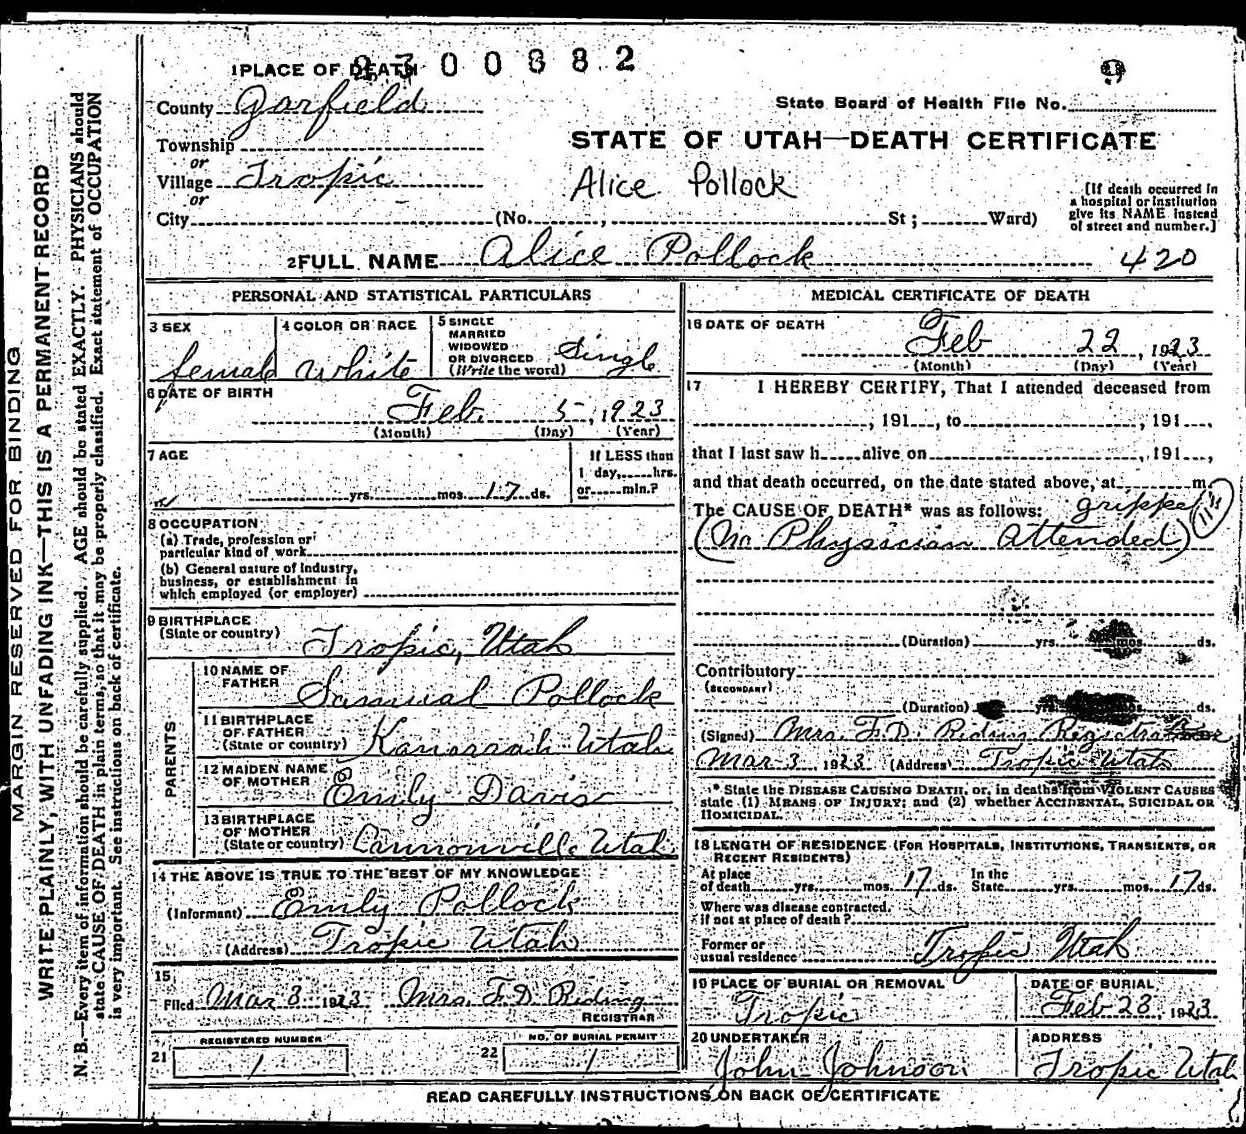 2300882
9
1 PLACE OF DEATH
County Garfield
State Board of Health File No.
Township
or
Village Tropic
or
City (No. , St ; Ward)
STATE OF UTAH—DEATH CERTIFICATE
Alice Pollock
[If death occurred in
a hospital or institution
give its NAME instead
of street and number.]
2 FULL NAME Alice Pollock
420
PERSONAL AND STATISTICAL PARTICULARS
3 SEX
female
4 COLOR OR RACE
White
5 SINGLE
MARRIED
WIDOWED
OR DIVORCED
(Write the word)
Single
6 DATE OF BIRTH
Feb. 5, 1923
(Month) (Day) (Year)
7 AGE
yrs. mos. 17 ds.
If LESS than
1 day, hrs.
or min.?
8 OCCUPATION
(a) Trade, profession or
particular kind of work
(b) General nature of industry,
business, or establishment in
which employed (or employer)
9 BIRTHPLACE
(State or country) Tropic, Utah
PARENTS
10 NAME OF
FATHER Samual Pollock
11 BIRTHPLACE
OF FATHER
(State or country) Kanarrah Utah
12 MAIDEN NAME
OF MOTHER Emily Davis
13 BIRTHPLACE
OF MOTHER
(State or country) Cannonville Utah
14 THE ABOVE IS TRUE TO THE BEST OF MY KNOWLEDGE
(Informant) Emily Pollock
(Address) Tropic Utah
15
Filed Mar 3 1923 Mrs. F. D. Riding
REGISTRAR
21 REGISTERED NUMBER
1
22 NO. OF BURIAL PERMIT
1
MEDICAL CERTIFICATE OF DEATH
16 DATE OF DEATH
Feb 22, 1923
(Month) (Day) (Year)
17 I HEREBY CERTIFY, That I attended deceased from
, 191 , to , 191 ,
that I last saw h alive on , 191 ,
and that death occurred, on the date stated above, at m.
The CAUSE OF DEATH* was as follows: grippe
(No Physician Attended)
(Duration) yrs. mos. ds.
Contributory
(SECONDARY)
(Duration) yrs. ds.
(Signed) Mrs. F. D. Riding Registrar
Mar 3 1923 (Address) Tropic Utah
* State the DISEASE CAUSING DEATH, or, in deaths from VIOLENT CAUSES
state (1) MEANS OF INJURY; and (2) whether ACCIDENTAL, SUICIDAL OR
HOMICIDAL.
18 LENGTH OF RESIDENCE (FOR HOSPITALS, INSTITUTIONS, TRANSIENTS, OR
RECENT RESIDENTS)
At place
of death yrs. mos. 17 ds.
In the
State yrs. mos. 17 ds.
Where was disease contracted,
if not at place of death?
Former or
usual residence Tropic Utah
19 PLACE OF BURIAL OR REMOVAL
Tropic
DATE OF BURIAL
Feb 23, 1923
20 UNDERTAKER
John Johnson
ADDRESS
Tropic Utah
READ CAREFULLY INSTRUCTIONS ON BACK OF CERTIFICATE
MARGIN RESERVED FOR BINDING
WRITE PLAINLY, WITH UNFADING INK—THIS IS A PERMANENT RECORD
N. B.—Every item of information should be carefully supplied. AGE should be stated EXACTLY. PHYSICIANS should
state CAUSE OF DEATH in plain terms, so that it may be properly classified. Exact statement of OCCUPATION
is very important. See instructions on back of certificate.